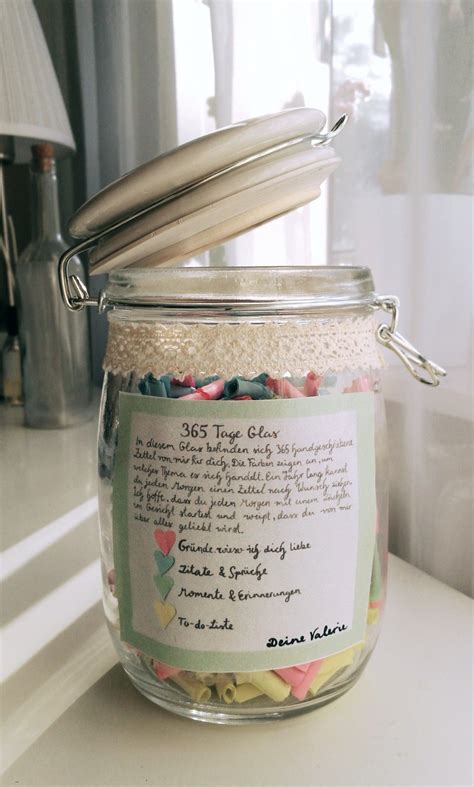 365 Tage Glas
In diesem Glas befinden sich 365 handgeschriebene
Zettel von mir für dich. Die Farben zeigen an, um
welches Thema es sich handelt. Ein Jahr lang kannst
du jeden Morgen einen Zettel nach Wunsch ziehen.
Ich hoffe, dass du jeden Morgen mit einem Lächeln
im Gesicht startest und weißt, dass du von mir
über alles geliebt wirst.
Gründe wieso ich dich liebe
Zitate & Sprüche
Momente & Erinnerungen
To-do-Liste
Deine Valerie